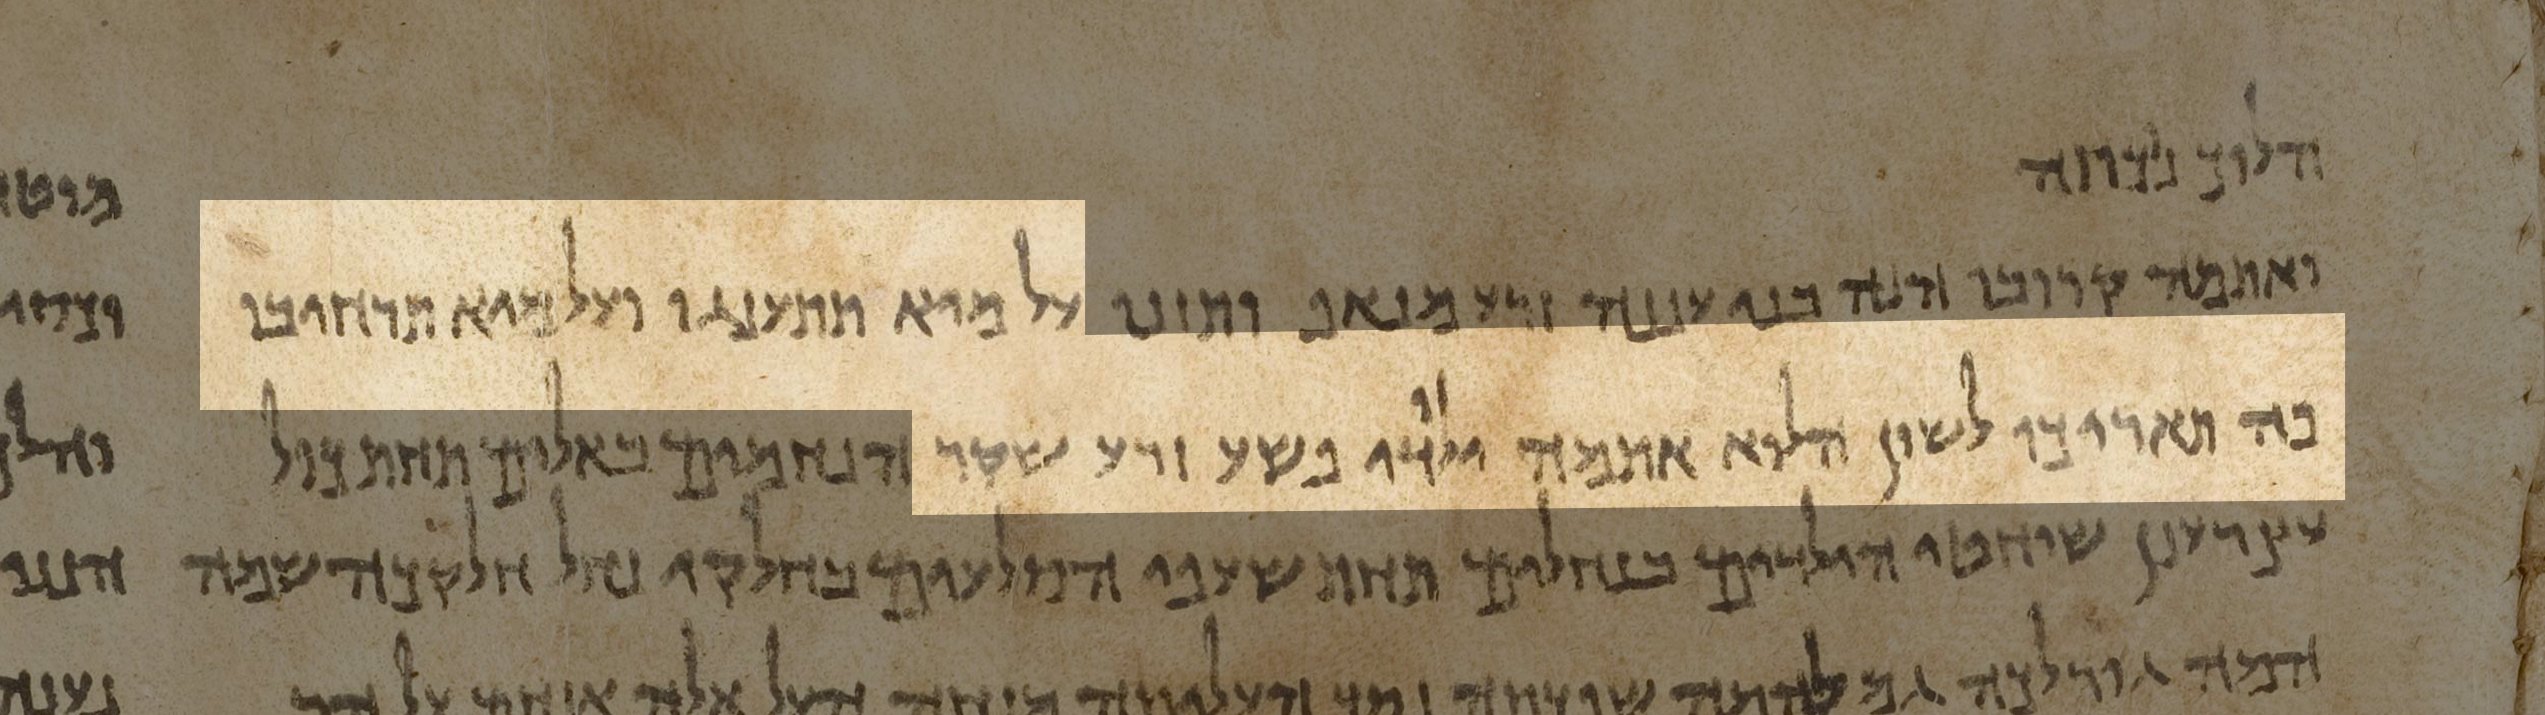 הולך נכוחה
ואתמה קרובו הנה בני עננה זרע מנאפ ותזנו על מיא תתענגו ועל מיא תרחיבו
פה ותאריכו לשון הלוא אתמה ילדי פשע זרע שקר הנחמים באלים תחת כול
עץ רענן שוחטי הילדים בנחלים תחת סעפי הסלעים בחלקי נחל חלקכה שמה
המה גורלכה גם להמה שפכתה נסך והעליתה מנחה העל אלה אנחם על הר